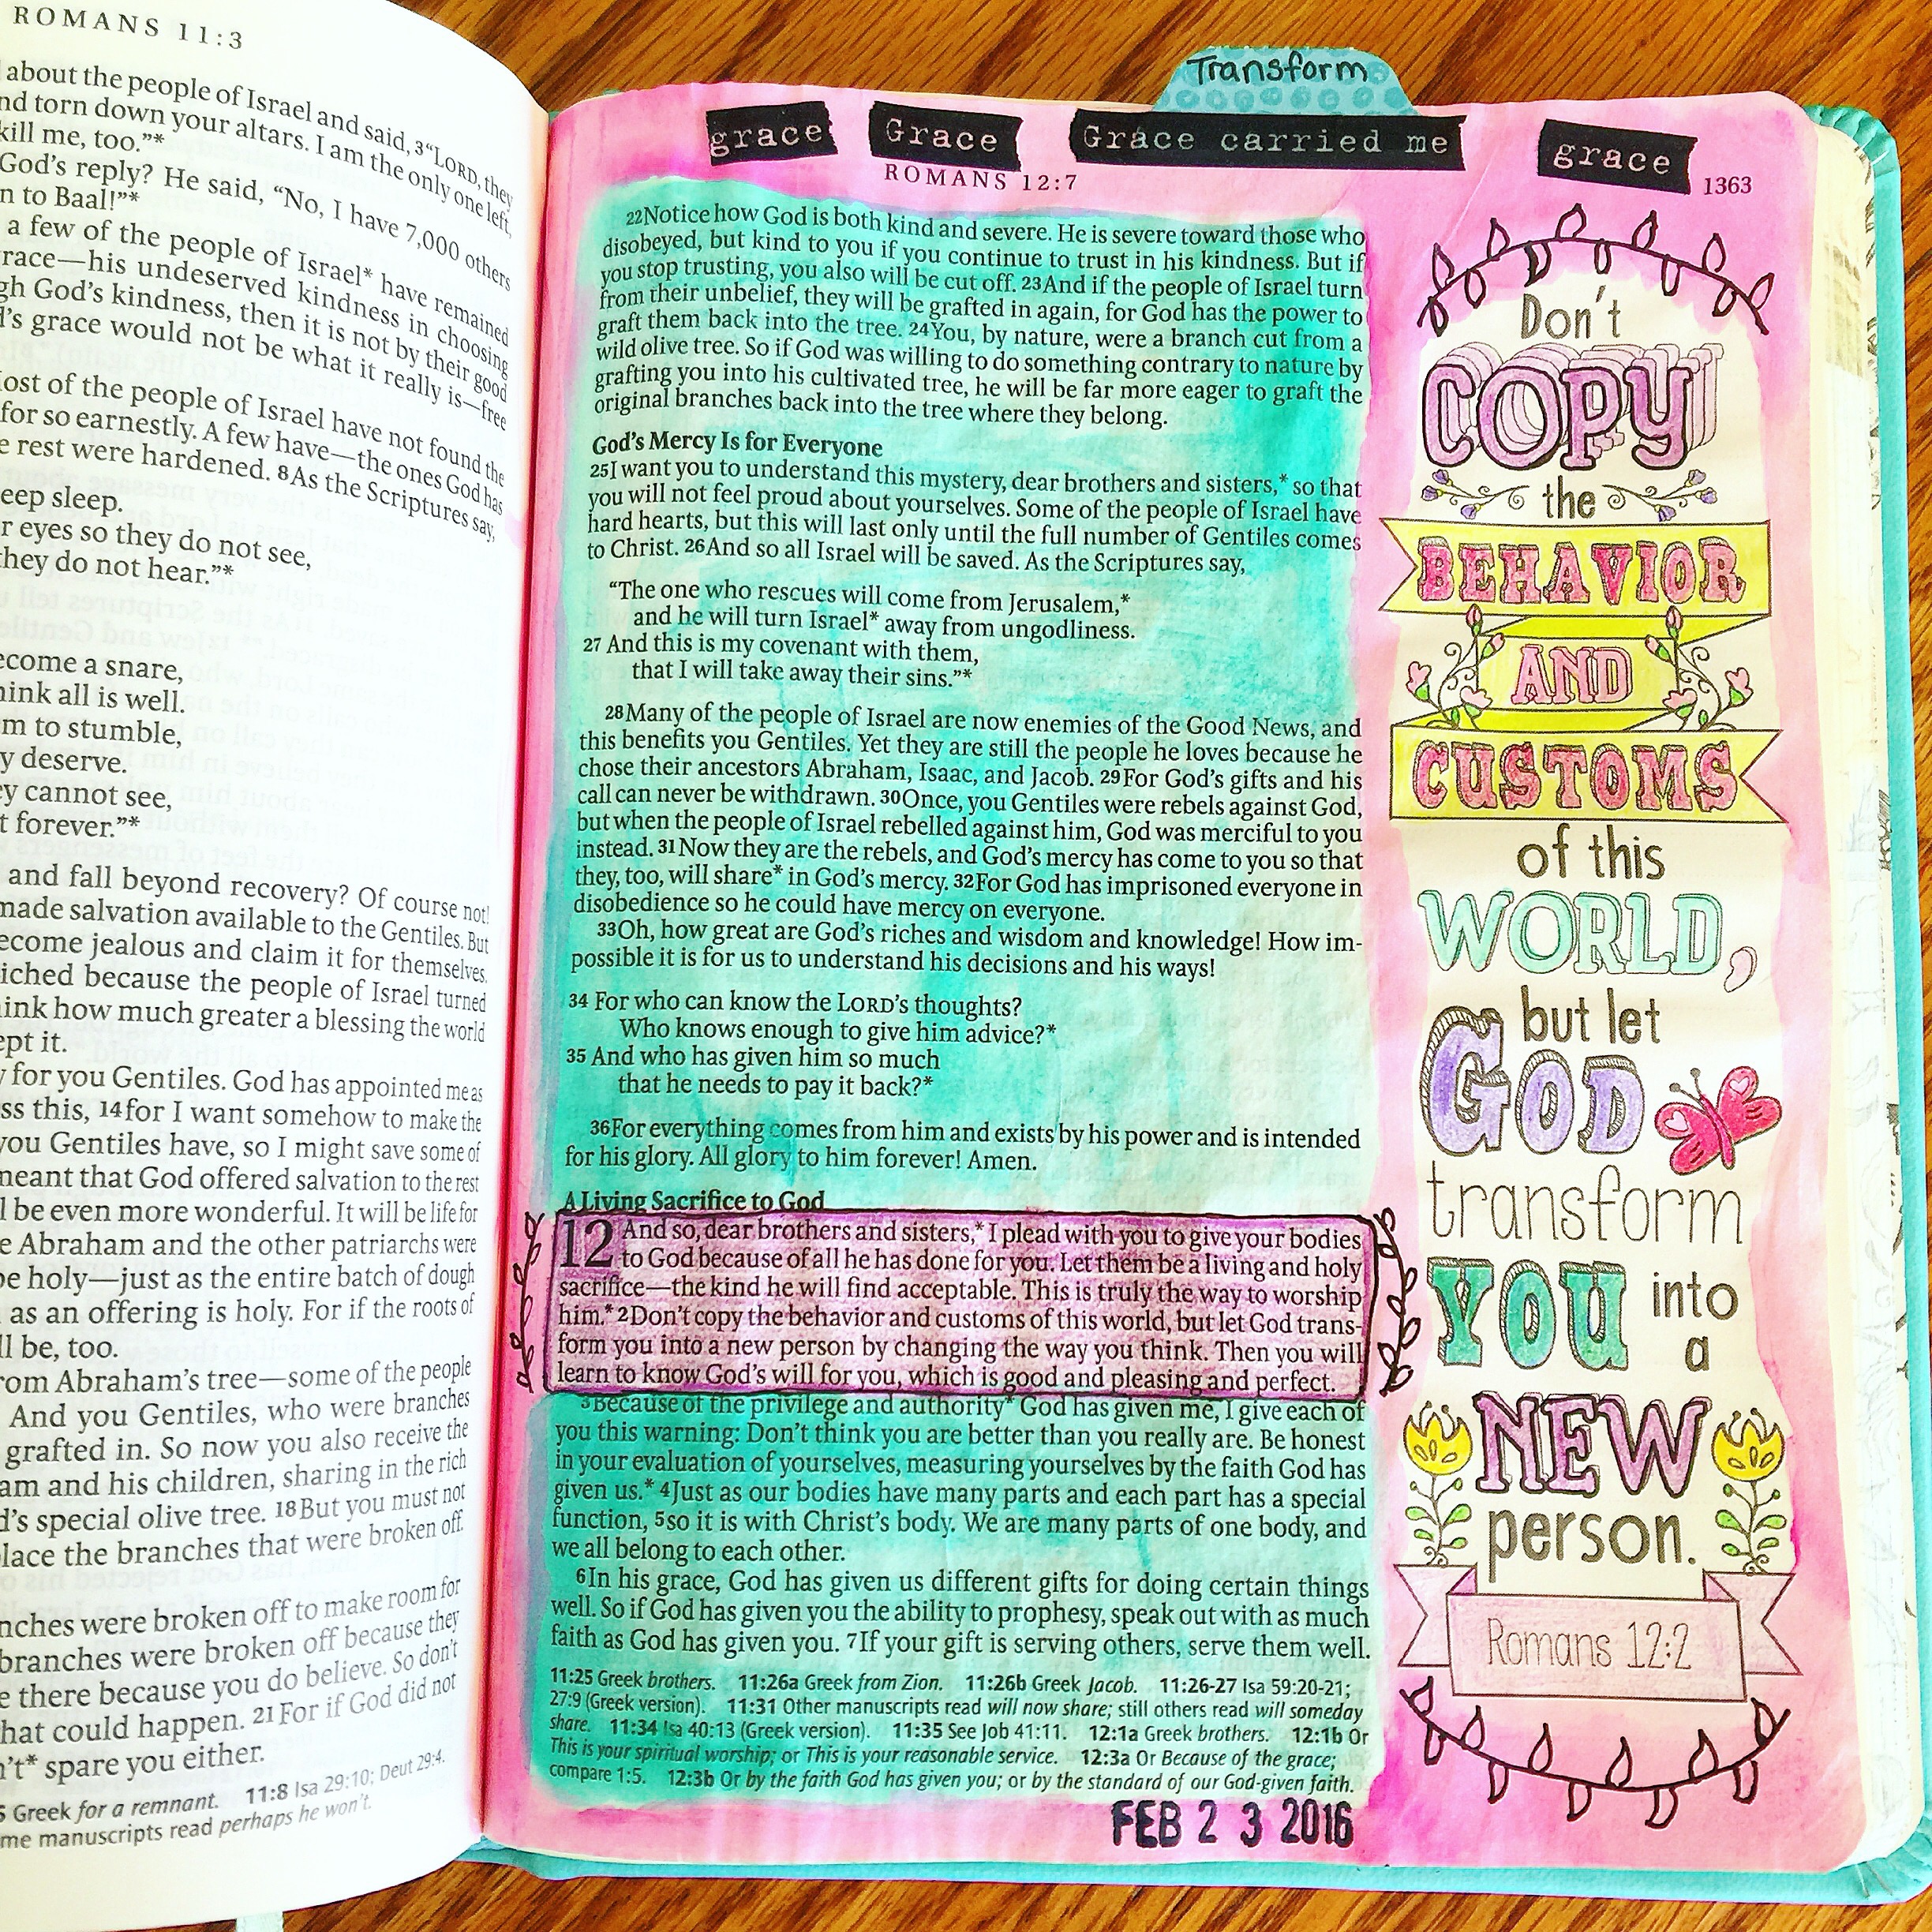 ROMANS 11:3
about the people of Israel and said, 3“LORD, they
nd torn down your altars. I am the only one left,
kill me, too.”*
God’s reply? He said, “No, I have 7,000 others
n to Baal!”*
a few of the people of Israel* have remained
race—his undeserved kindness in choosing
gh God’s kindness, then it is not by their good
’s grace would not be what it really is—free
ost of the people of Israel have not found the
for so earnestly. A few have—the ones God has
e rest were hardened. 8As the Scriptures say,
eep sleep.
r eyes so they do not see,
hey do not hear.”*
ecome a snare,
hink all is well.
m to stumble,
y deserve.
ey cannot see,
t forever.”*
and fall beyond recovery? Of course not!
made salvation available to the Gentiles. But
ecome jealous and claim it for themselves.
iched because the people of Israel turned
ink how much greater a blessing the world
ept it.
for you Gentiles. God has appointed me as
ss this, 14for I want somehow to make the
you Gentiles have, so I might save some of
meant that God offered salvation to the rest
l be even more wonderful. It will be life for
e Abraham and the other patriarchs were
be holy—just as the entire batch of dough
as an offering is holy. For if the roots of
ll be, too.
rom Abraham’s tree—some of the people
And you Gentiles, who were branches
grafted in. So now you also receive the
am and his children, sharing in the rich
d’s special olive tree. 18But you must not
lace the branches that were broken off.
nches were broken off to make room for
branches were broken off because they
e there because you do believe. So don’t
hat could happen. 21For if God did not
n’t* spare you either.
5 Greek for a remnant. 11:8 Isa 29:10; Deut 29:4.
me manuscripts read perhaps he won’t.
Transform
grace Grace Grace carried me grace
ROMANS 12:7 1363
22Notice how God is both kind and severe. He is severe toward those who
disobeyed, but kind to you if you continue to trust in his kindness. But if
you stop trusting, you also will be cut off. 23And if the people of Israel turn
from their unbelief, they will be grafted in again, for God has the power to
graft them back into the tree. 24You, by nature, were a branch cut from a
wild olive tree. So if God was willing to do something contrary to nature by
grafting you into his cultivated tree, he will be far more eager to graft the
original branches back into the tree where they belong.
God’s Mercy Is for Everyone
25I want you to understand this mystery, dear brothers and sisters,* so that
you will not feel proud about yourselves. Some of the people of Israel have
hard hearts, but this will last only until the full number of Gentiles comes
to Christ. 26And so all Israel will be saved. As the Scriptures say,
“The one who rescues will come from Jerusalem,*
and he will turn Israel* away from ungodliness.
27 And this is my covenant with them,
that I will take away their sins.”*
28Many of the people of Israel are now enemies of the Good News, and
this benefits you Gentiles. Yet they are still the people he loves because he
chose their ancestors Abraham, Isaac, and Jacob. 29For God’s gifts and his
call can never be withdrawn. 30Once, you Gentiles were rebels against God,
but when the people of Israel rebelled against him, God was merciful to you
instead. 31Now they are the rebels, and God’s mercy has come to you so that
they, too, will share* in God’s mercy. 32For God has imprisoned everyone in
disobedience so he could have mercy on everyone.
33Oh, how great are God’s riches and wisdom and knowledge! How im-
possible it is for us to understand his decisions and his ways!
34 For who can know the LORD’s thoughts?
Who knows enough to give him advice?*
35 And who has given him so much
that he needs to pay it back?*
36For everything comes from him and exists by his power and is intended
for his glory. All glory to him forever! Amen.
A Living Sacrifice to God
12 And so, dear brothers and sisters,* I plead with you to give your bodies
to God because of all he has done for you. Let them be a living and holy
sacrifice—the kind he will find acceptable. This is truly the way to worship
him.* 2Don’t copy the behavior and customs of this world, but let God trans-
form you into a new person by changing the way you think. Then you will
learn to know God’s will for you, which is good and pleasing and perfect.
3Because of the privilege and authority* God has given me, I give each of
you this warning: Don’t think you are better than you really are. Be honest
in your evaluation of yourselves, measuring yourselves by the faith God has
given us.* 4Just as our bodies have many parts and each part has a special
function, 5so it is with Christ’s body. We are many parts of one body, and
we all belong to each other.
6In his grace, God has given us different gifts for doing certain things
well. So if God has given you the ability to prophesy, speak out with as much
faith as God has given you. 7If your gift is serving others, serve them well.
11:25 Greek brothers. 11:26a Greek from Zion. 11:26b Greek Jacob. 11:26-27 Isa 59:20-21;
27:9 (Greek version). 11:31 Other manuscripts read will now share; still others read will someday
share. 11:34 Isa 40:13 (Greek version). 11:35 See Job 41:11. 12:1a Greek brothers. 12:1b Or
This is your spiritual worship; or This is your reasonable service. 12:3a Or Because of the grace;
compare 1:5. 12:3b Or by the faith God has given you; or by the standard of our God-given faith.
FEB 2 3 2016
Don’t
COPY
the
BEHAVIOR
AND
CUSTOMS
of this
WORLD,
but let
GOD
transform
YOU into
a
NEW
person.
Romans 12:2